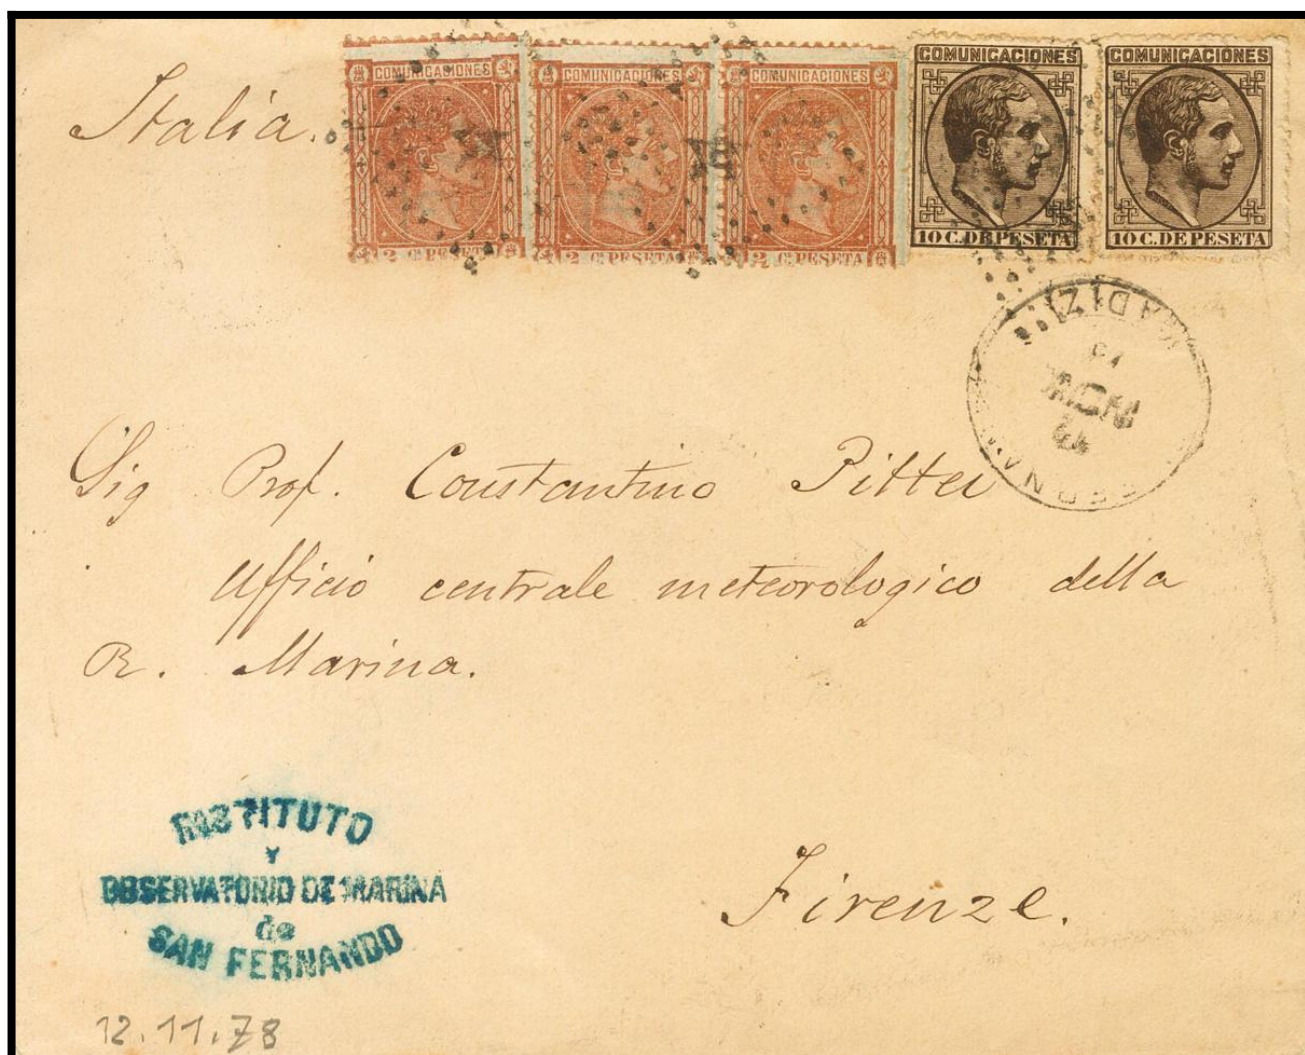 Italia.
COMUNICACIONES
2 C. PESETA
COMUNICACIONES
2 C. PESETA
COMUNICACIONES
2 C. PESETA
COMUNICACIONES
10 C. DE PESETA
COMUNICACIONES
10 C. DE PESETA
(CADIZ)
Sig Prof. Constantino Pittei
Ufficio centrale meteorologico della
R. Marina.
INSTITUTO
Y
OBSERVATORIO DE MARINA
de
SAN FERNANDO
Firenze.
12.11.78